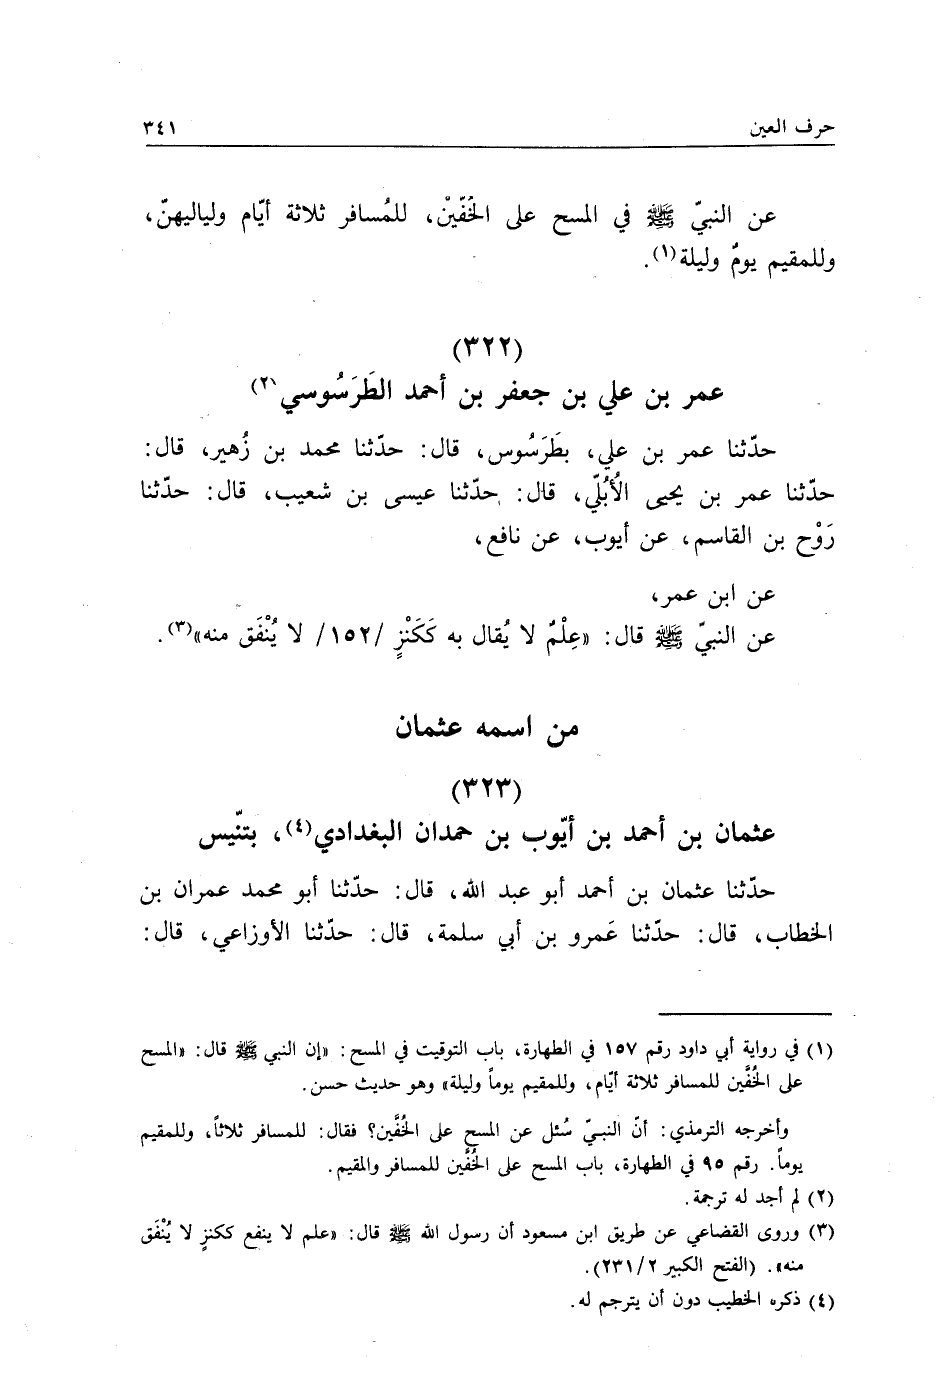 حرف العين ٣٤١
عن النبيّ ﷺ في المسح على الخُفّيْن، للمُسافر ثلاثة أيّام ولياليهنّ،
وللمقيم يومٌ وليلة(١).
(٣٢٢)
عمر بن علي بن جعفر بن أحمد الطَرَسُوسي(٢)
حدّثنا عمر بن علي، بطَرَسُوس، قال: حدّثنا محمد بن زُهير، قال:
حدّثنا عمر بن يحيى الأُبُلّي، قال: حدّثنا عيسى بن شعيب، قال: حدّثنا
رَوْح بن القاسم، عن أيوب، عن نافع،
عن ابن عمر،
عن النبيّ ﷺ قال: «عِلْمٌ لا يُقال به كَكَنْزٍ /١٥٢/ لا يُنْفَق منه»(٣).
من اسمه عثمان
(٣٢٣)
عثمان بن أحمد بن أيّوب بن حمدان البغدادي(٤)، بتنّيس
حدّثنا عثمان بن أحمد أبو عبد الله، قال: حدّثنا أبو محمد عمران بن
الخطاب، قال: حدّثنا عَمرو بن أبي سلمة، قال: حدّثنا الأوزاعي، قال:
(١) في رواية أبي داود رقم ١٥٧ في الطهارة، باب التوقيت في المسح: «إن النبي ﷺ قال: «المسح
على الخُفَّين للمسافر ثلاثة أيّام، وللمقيم يوماً وليلة» وهو حديث حسن.
وأخرجه الترمذي: أنّ النبيّ سُئل عن المسح على الخُفَّين؟ فقال: للمسافر ثلاثاً، وللمقيم
يوماً. رقم ٩٥ في الطهارة، باب المسح على الخُفَّين للمسافر والمقيم.
(٢) لم أجد له ترجمة.
(٣) وروى القضاعي عن طريق ابن مسعود أن رسول الله ﷺ قال: «علم لا ينفع ككنزٍ لا يُنْفَق
منه». (الفتح الكبير ٢/٢٣١).
(٤) ذكره الخطيب دون أن يترجم له.